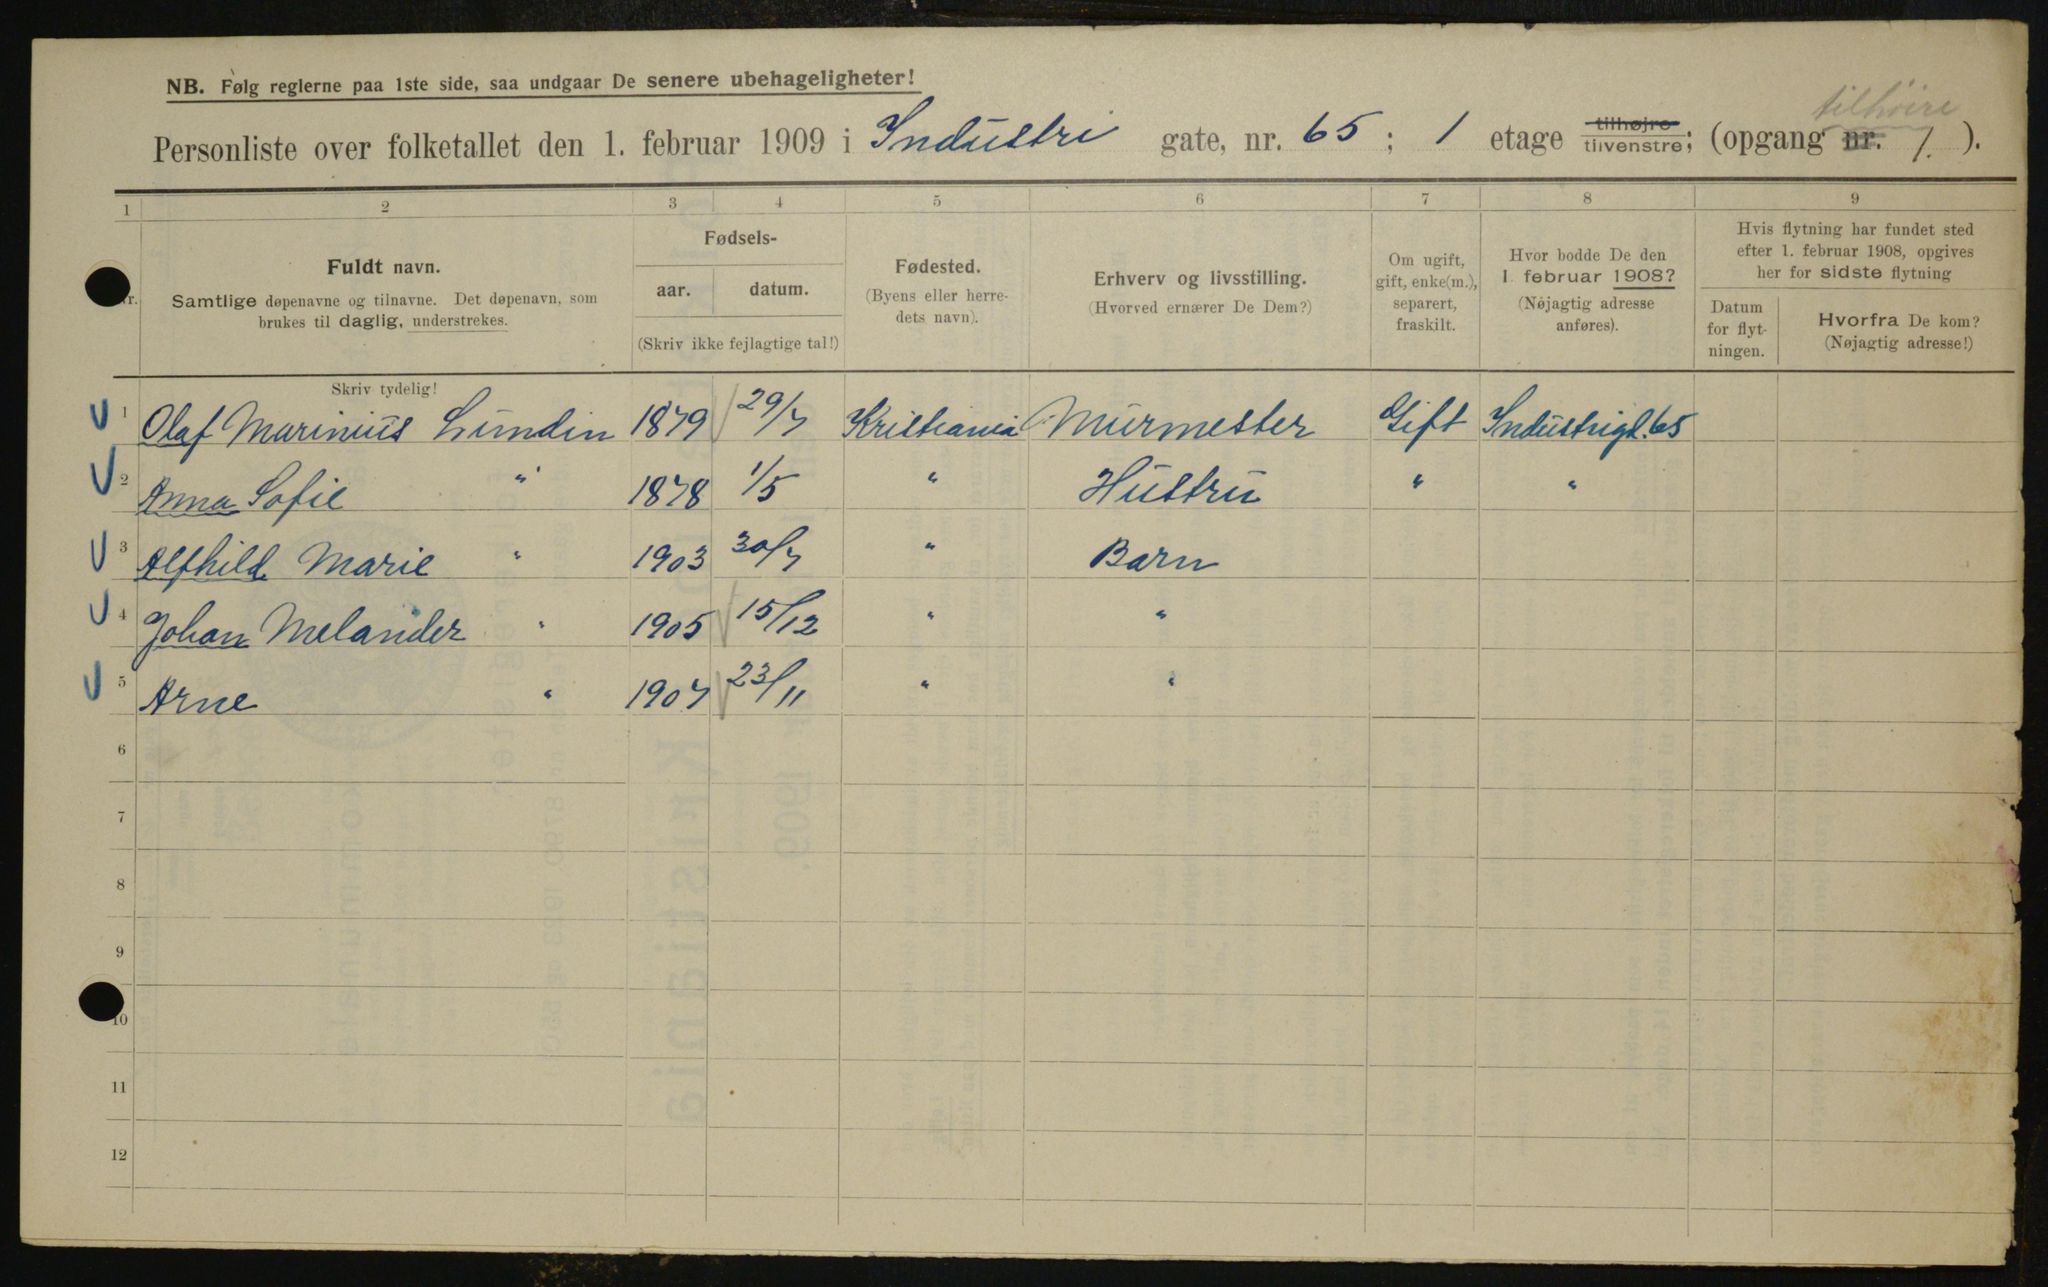 NB. Følg reglerne paa 1ste side, saa undgaar De senere ubehageligheter!
tilhøire
Personliste over folketallet den 1. februar 1909 i Industri gate, nr. 65; 1 etage tilhøjre tilvenstre; (opgang nr. 1.).
1 2 3 4 5 6 7 8 9
Nr.
Fuldt navn.
Samtlige døpenavne og tilnavne. Det døpenavn, som
brukes til daglig, understrekes.
Fødsels-
aar. datum.
(Skriv ikke fejlagtige tal!)
Fødested.
(Byens eller herre-
dets navn).
Erhverv og livsstilling.
(Hvorved ernærer De Dem?)
Om ugift,
gift, enke(m.),
separert,
fraskilt.
Hvor bodde De den
1 februar 1908?
(Nøjagtig adresse
anføres).
Hvis flytning har fundet sted
efter 1. februar 1908, opgives
her for sidste flytning
Datum
for flyt-
ningen.
Hvorfra De kom?
(Nøjagtig adresse!)
Skriv tydelig!
1 Olaf Marinius Lundin 1879 29/7 Kristiania Murmester Gift Industrigt. 65
2 Anna Sofie " 1878 1/5 " Hustru " "
3 Alfhild Marie " 1903 30/7 " Barn
4 Johan Melander " 1905 15/12 " "
5 Arne " 1907 23/11 " "
6
7
8
9
10
11
12